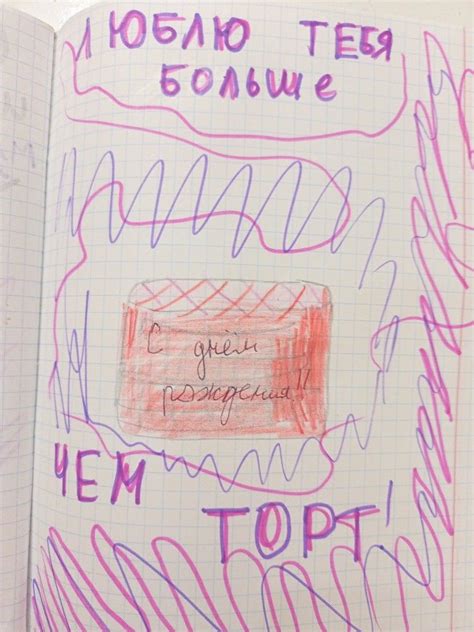 ЛЮБЛЮ ТЕБЯ
БОЛЬШЕ
С днём
рождения!!
ЧЕМ
ТОРТ!